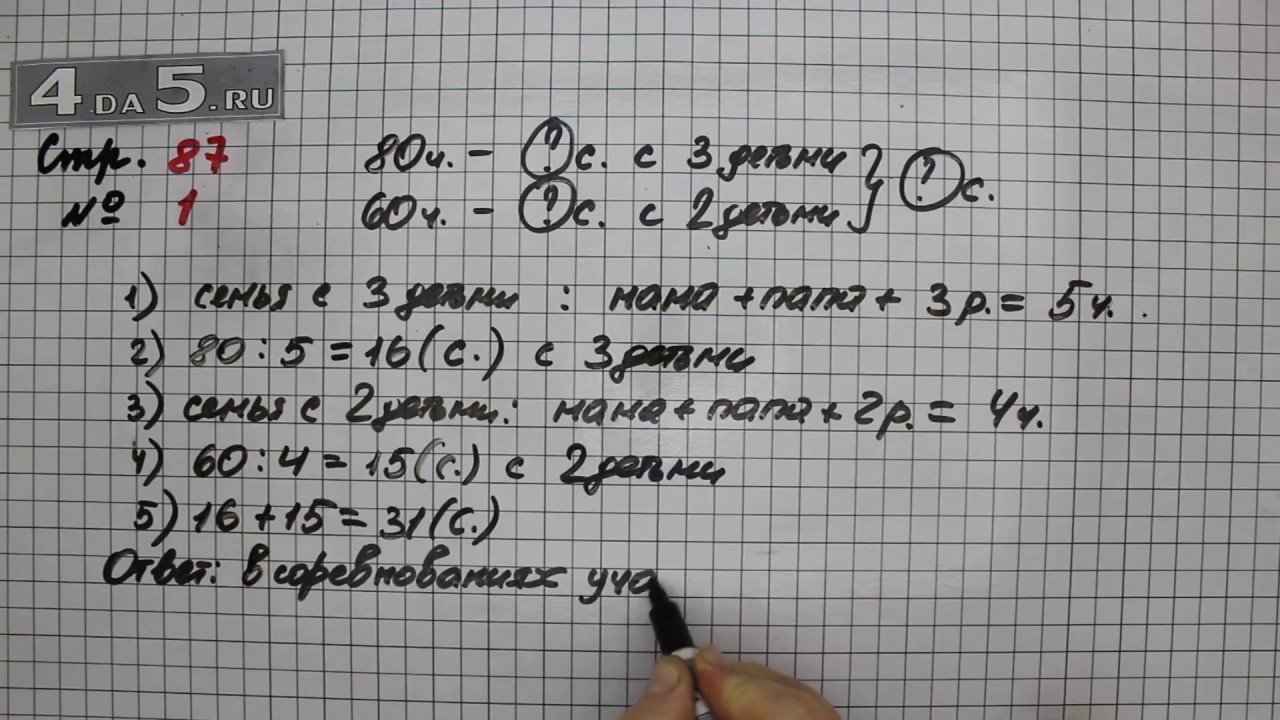 4DA5.RU
Стр. 87
№ 1
80ч. - ? с. с 3 детьми
60ч. - ? с. с 2 детьми } ? с.
1) семья с 3 детьми : мама + папа + 3 р. = 5 ч.
2) 80 : 5 = 16 (с.) с 3 детьми
3) семья с 2 детьми: мама + папа + 2 р. = 4 ч.
4) 60 : 4 = 15 (с.) с 2 детьми
5) 16 + 15 = 31 (с.)
Ответ: в соревнованиях уча